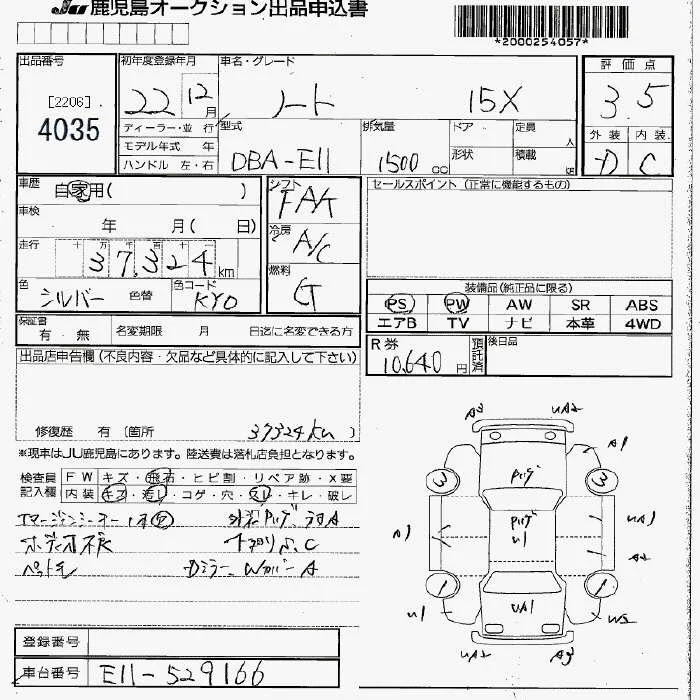 JU 鹿児島オークション出品申込書
*2000254057*
出品番号
[2206]
4035
初年度登録年月
22 12月
車名・グレード
ノート 15X
評価点
3.5
外装 内装
D C
ディーラー・並行
モデル年式 年
ハンドル 左・右
型式
DBA-E11
排気量
1500 cc
ドア
形状
定員 人
積載 kg
車歴
自家用( )
車検
年 月( 日)
走行
十 万 千 百 十
37,324 km
色
シルバー 色替
色コード
KY0
シフト
FAK
冷房
A/C
燃料
G
セールスポイント(正常に機能するもの)
装備品(純正品に限る)
PS PW AW SR ABS
エアB TV ナビ 本革 4WD
保証書
有・無
名変期限 月 日迄に名変できる方
R券
10,640円
預託済
後日品
出品店申告欄(不良内容・欠品など具体的に記入して下さい)
修復歴 有(箇所 37324km )
※現車はJU鹿児島にあります。陸送費は落札店負担となります。
検査員記入欄
FW キズ・飛石・ヒビ割・リペア跡・X要
内装 キズ・汚レ・コゲ・穴・スレ・キレ・破レ
A3 UA2
A1
3 3
A1
UA1
A2
U1
1 1
UA1
W2
UA2 A3
登録番号
車台番号 E11-529166